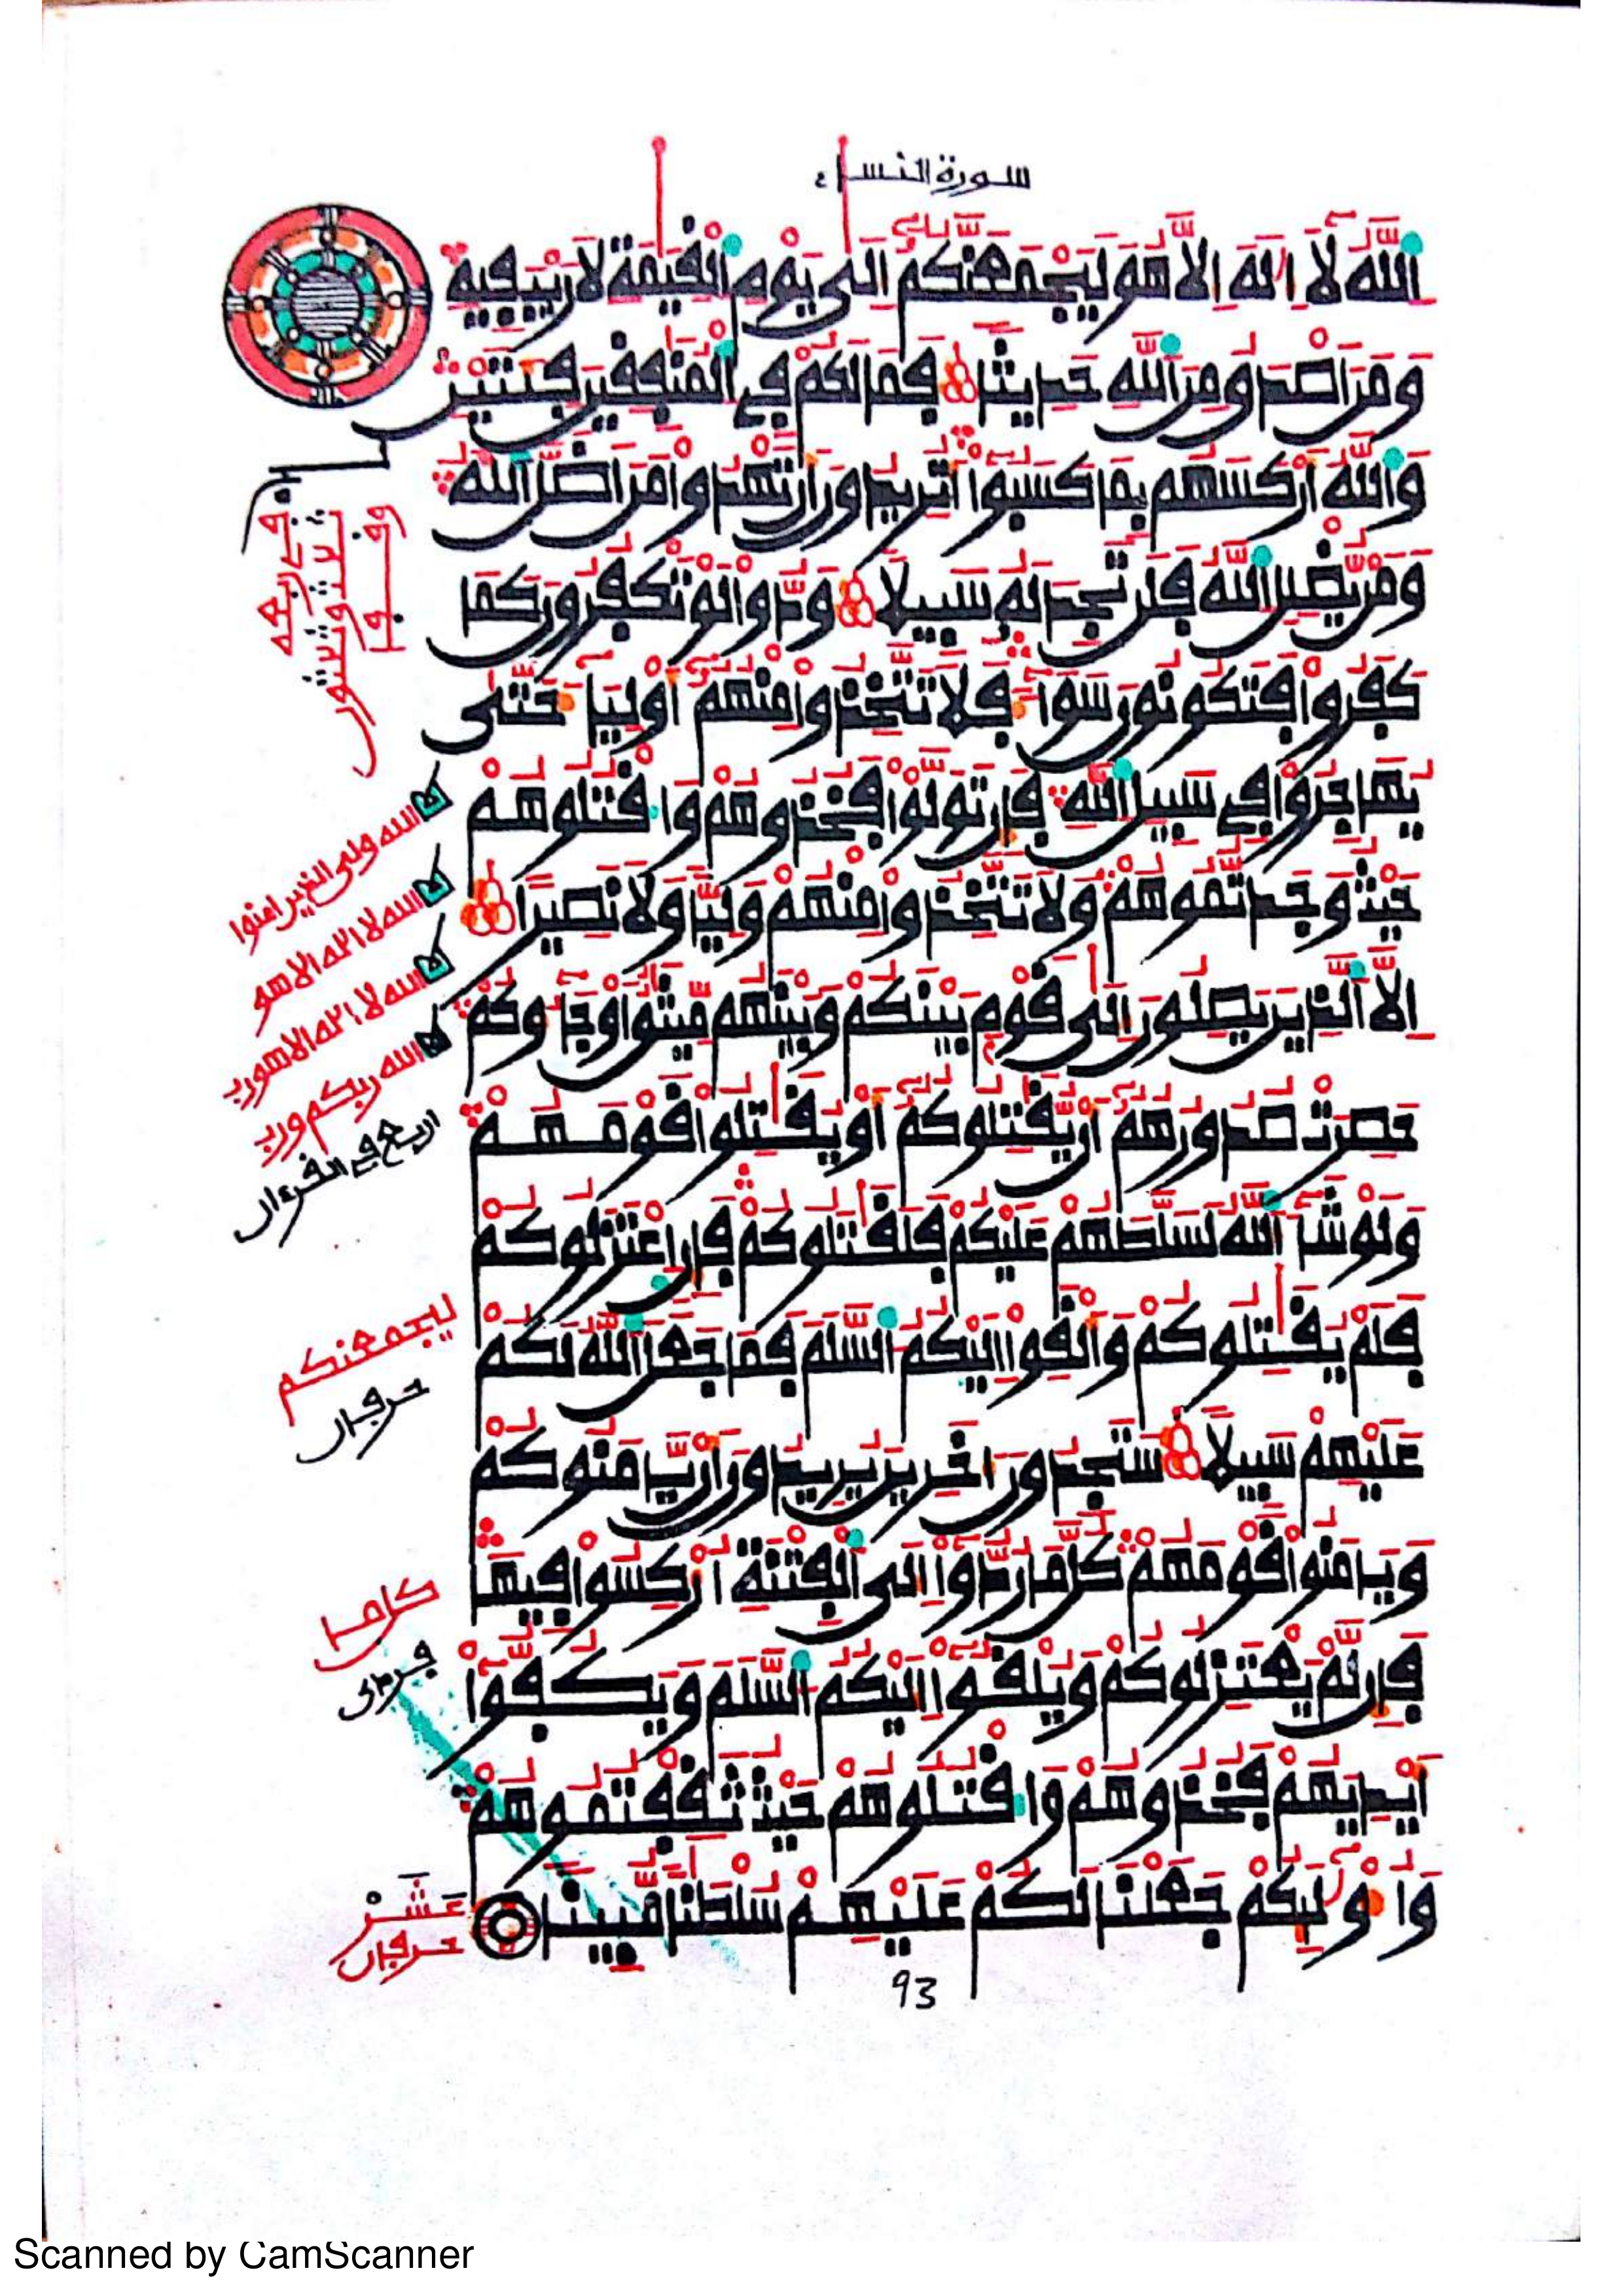 سورة النساء
اللَّهُ لَا إِلَهَ إِلَّا هُوَ لَيَجْمَعَنَّكُمْ إِلَى يَوْمِ الْقِيَمَةِ لَا رَيْبَ فِيهِ
وَمَنْ أَصْدَقُ مِنَ اللَّهِ حَدِيثًا فَمَا لَكُمْ فِي الْمُنَفِقِينَ فِئَتَيْنِ
وَاللَّهُ أَرْكَسَهُم بِمَا كَسَبُوا أَتُرِيدُونَ أَن تَهْدُوا مَنْ أَضَلَّ اللَّهُ
وَمَن يُضْلِلِ اللَّهُ فَلَن تَجِدَ لَهُ سَبِيلًا وَدُّوا لَوْ تَكْفُرُونَ كَمَا
كَفَرُوا فَتَكُونُونَ سَوَاءً فَلَا تَتَّخِذُوا مِنْهُمْ أَوْلِيَاءَ حَتَّى
يُهَاجِرُوا فِي سَبِيلِ اللَّهِ فَإِن تَوَلَّوْا فَخُذُوهُمْ وَاقْتُلُوهُمْ
حَيْثُ وَجَدتُّمُوهُمْ وَلَا تَتَّخِذُوا مِنْهُمْ وَلِيًّا وَلَا نَصِيرًا
إِلَّا الَّذِينَ يَصِلُونَ إِلَى قَوْمٍ بَيْنَكُمْ وَبَيْنَهُم مِّيثَقٌ أَوْ جَاءُوكُمْ
حَصِرَتْ صُدُورُهُمْ أَن يُقَتِلُوكُمْ أَوْ يُقَتِلُوا قَوْمَهُمْ
وَلَوْ شَاءَ اللَّهُ لَسَلَّطَهُمْ عَلَيْكُمْ فَلَقَتَلُوكُمْ فَإِنِ اعْتَزَلُوكُمْ
فَلَمْ يُقَتِلُوكُمْ وَأَلْقَوْا إِلَيْكُمُ السَّلَمَ فَمَا جَعَلَ اللَّهُ لَكُمْ
عَلَيْهِمْ سَبِيلًا سَتَجِدُونَ ءَاخَرِينَ يُرِيدُونَ أَن يَأْمَنُوكُمْ
وَيَأْمَنُوا قَوْمَهُمْ كُلَّ مَا رُدُّوا إِلَى الْفِتْنَةِ أُرْكِسُوا فِيهَا
فَإِن لَّمْ يَعْتَزِلُوكُمْ وَيُلْقُوا إِلَيْكُمُ السَّلَمَ وَيَكُفُّوا
أَيْدِيَهُمْ فَخُذُوهُمْ وَاقْتُلُوهُمْ حَيْثُ ثَقِفْتُمُوهُمْ
وَأُولَئِكُمْ جَعَلْنَا لَكُمْ عَلَيْهِمْ سُلْطَنًا مُّبِينًا
93
الله ولى الذين امنوا
الله لا اله الا هو
الله لا اله الا هو رب
الله ربكم ورب
اربع في القرءان
ليجمعنكم
حرفان
كل ما
عشر
حرفان
Scanned by CamScanner